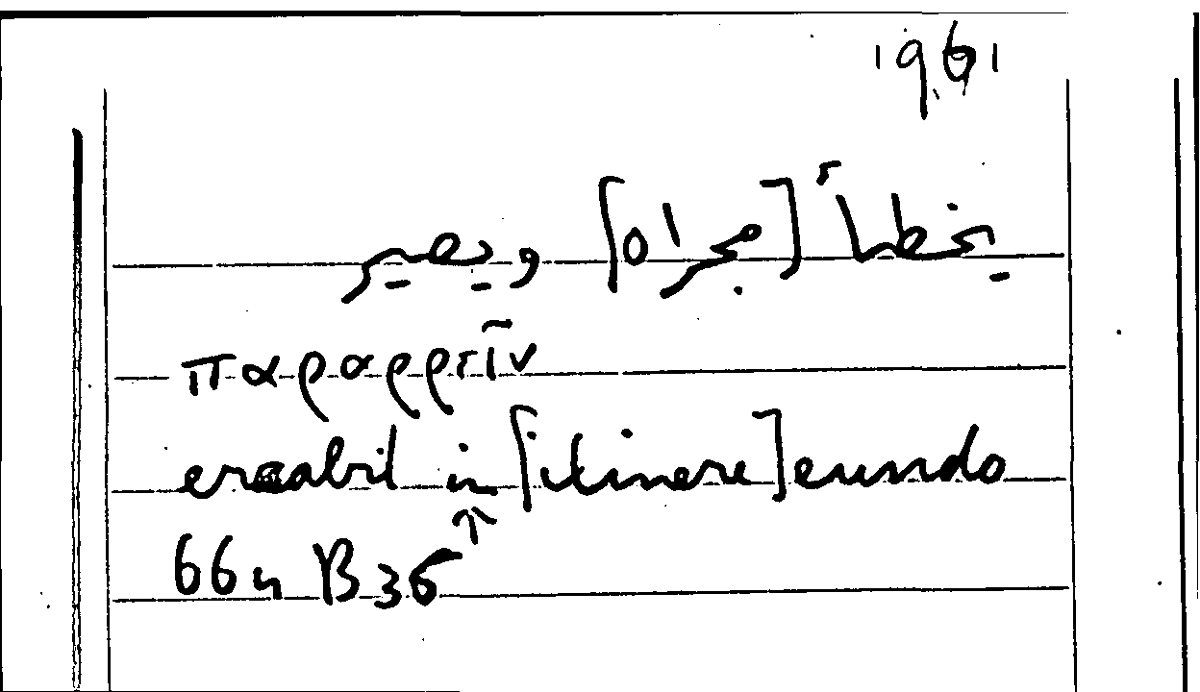 1961
يخطأ [مجراه] ويصير
παραρρεῖν
errabit in [itinere] eundo
66n B35